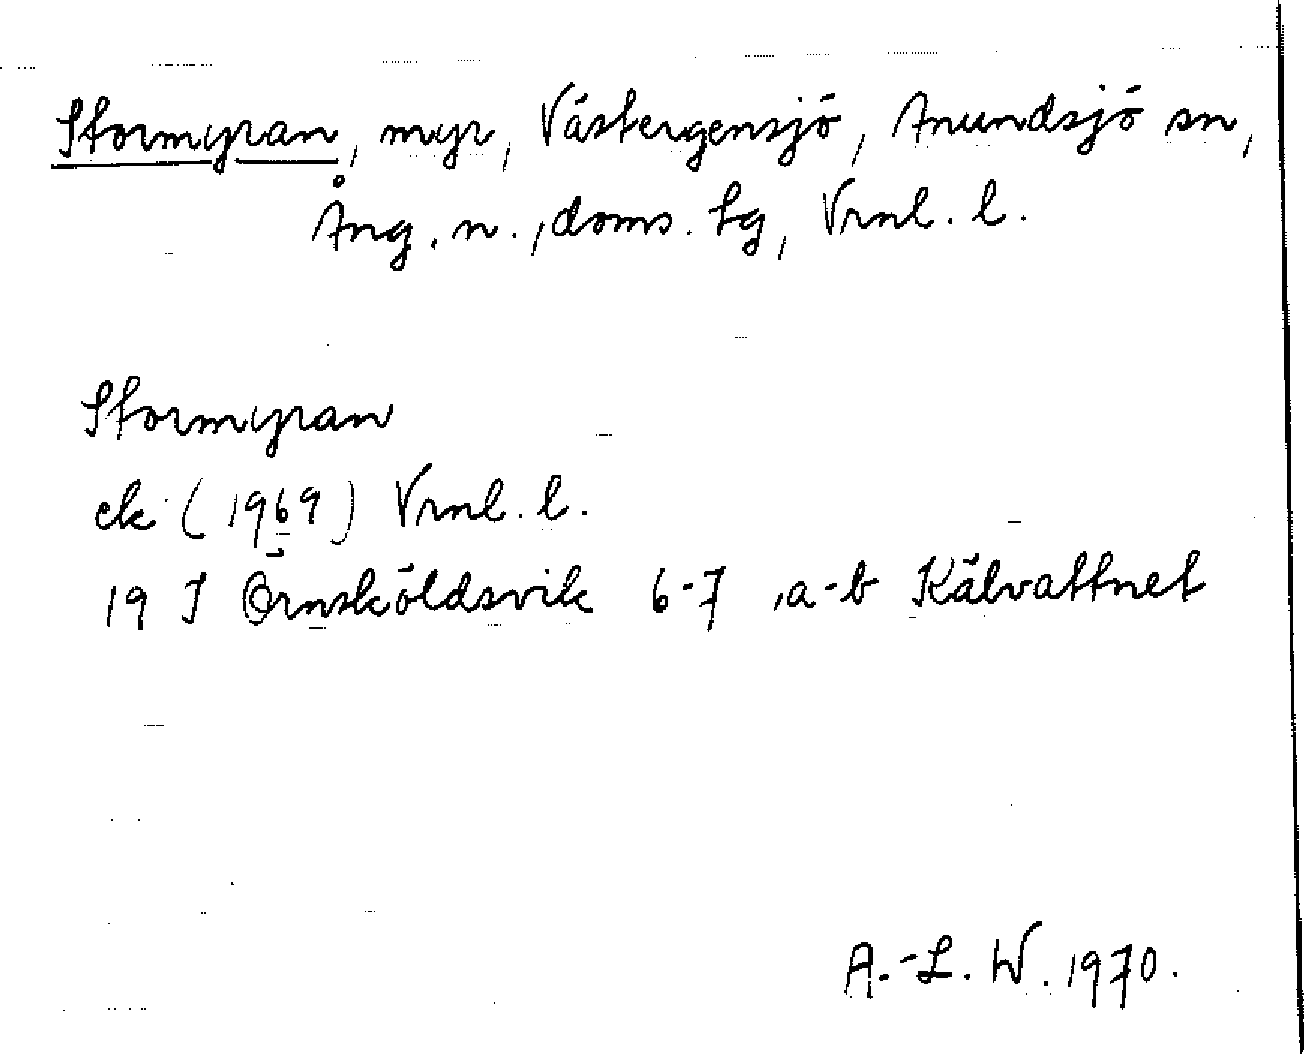 Stormyran, myr, Västergensjö, Anundsjö sn,
Ång. n., doms. tg, Vrnl. l.
Stormyran
ek (1969) Vrnl. l.
19 J Örnsköldsvik 6-7, a-b Kälvattnet
A.-L. W. 1970.